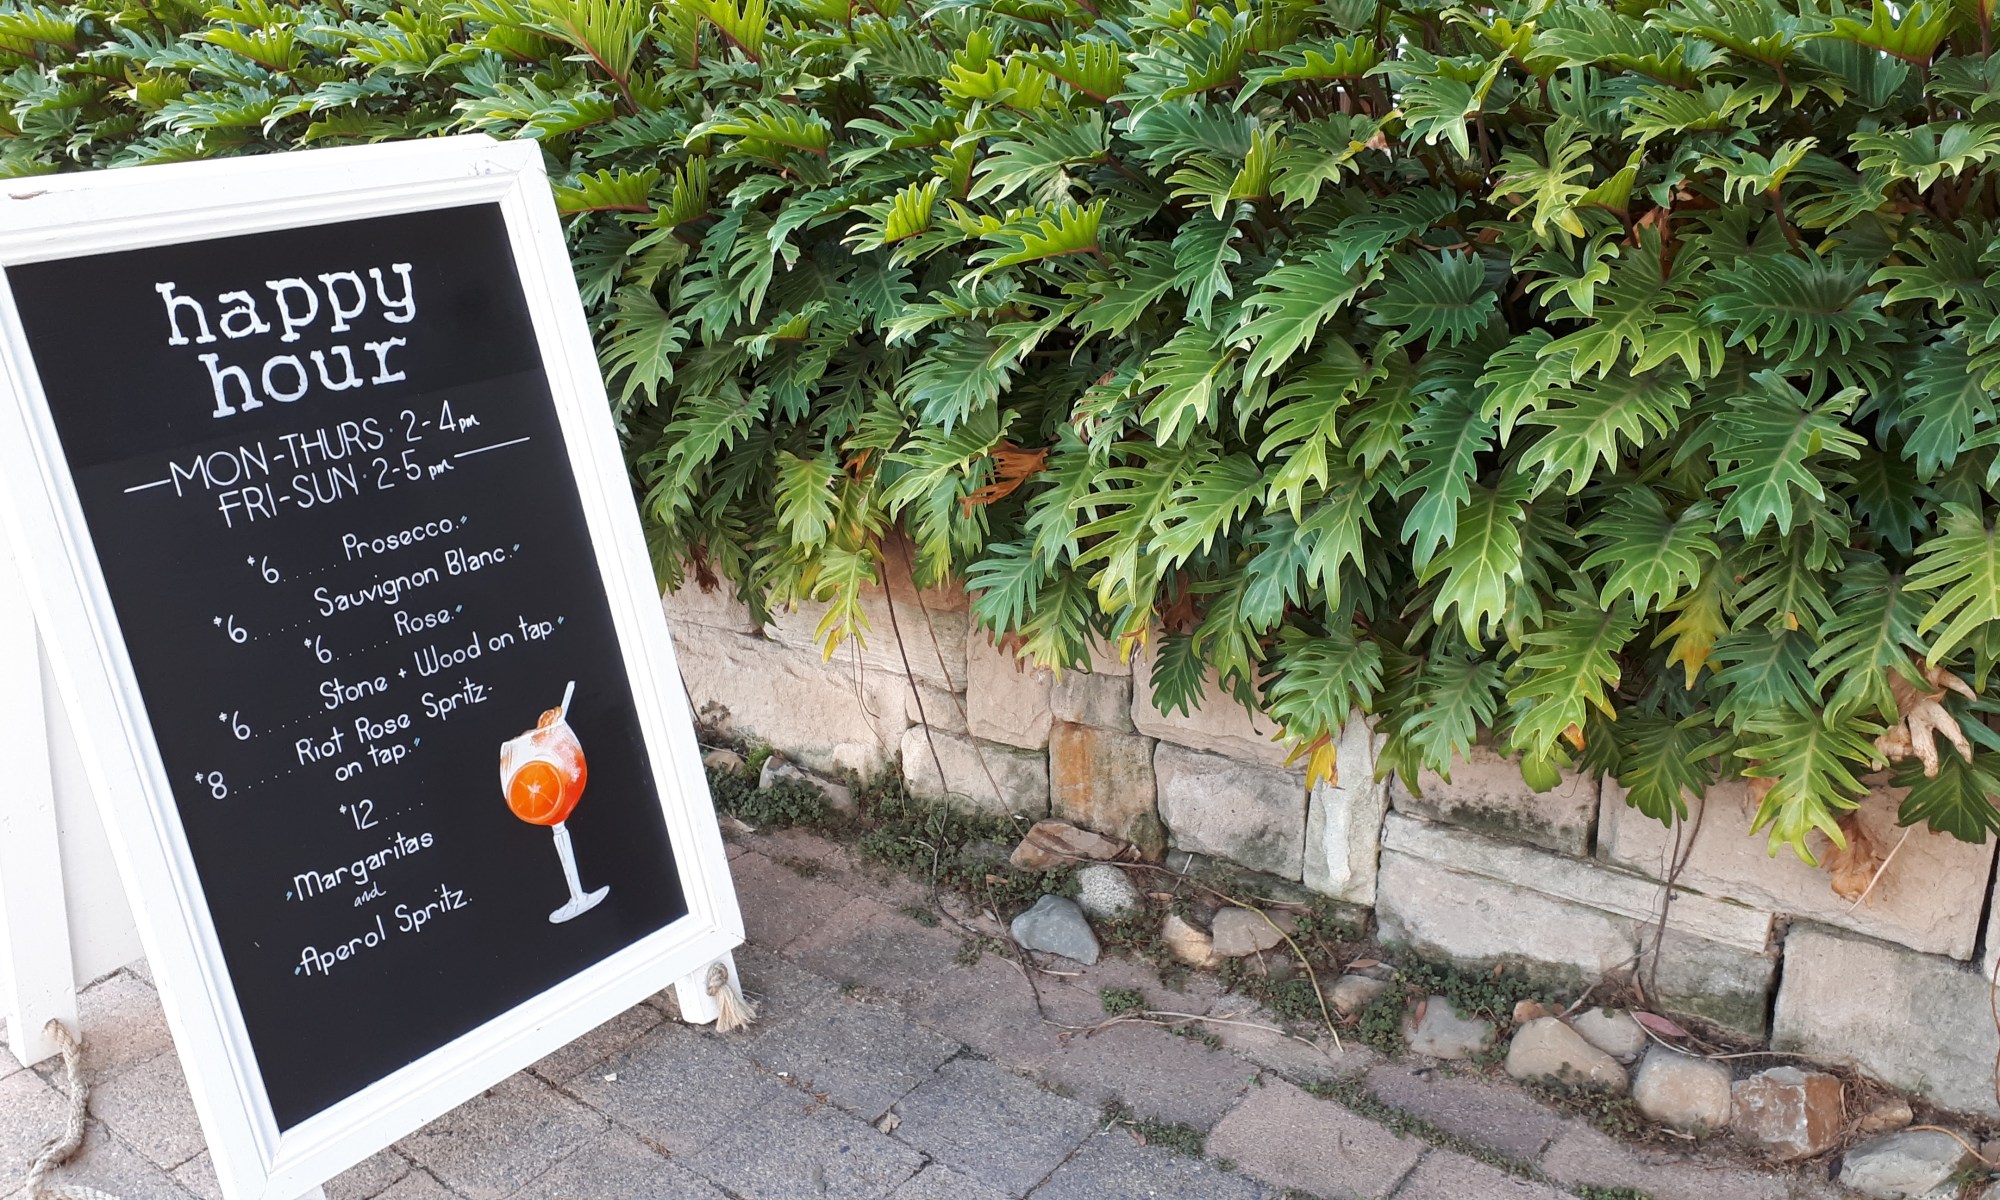 happy
hour
MON-THURS · 2-4pm
FRI-SUN · 2-5pm
$6......Prosecco."
$6......Sauvignon Blanc."
$6......Rose."
$6......Stone + Wood on tap."
$8......Riot Rose Spritz-
on tap."
$12....
"Margaritas
and
"Aperol Spritz.